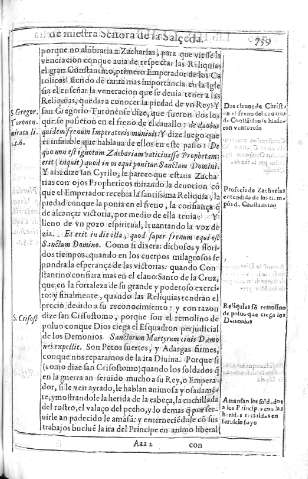 de nuestra Señora de la Salçeda. 759
porque no alabaria a Zacharias, para que viesse la
veneracion conque auia de respectar las Reliquias
el gran Constantino, primero Emperador de los Ca
tolicos: siendo de tanta mas importancia en la Igle
sia el enseñar la veneracion que se deuia tener a las
Reliquias, quedara conocer la piedad de vn Rey? Y
san Gregorio Turonense dize, que fueron dos los
que se pusieron en el freno de el cauallo: de duobus
quidem frenum Imperatoris muniuit: Y dize luego que
es infalible que hablaua de ellos en este passo: De
quo non est ignotum Zachariam vaticinasse Prophetam:
erit (inquit) quod in os equi ponitur Sanctum Domini.
Y assi dize san Cyrillo, le parece que estaua Zacha
rias con ojos Propheticos mirando la deuocion cõ
que el Emperador recebia la sanctissima Reliquia, y la
piedad conque la ponia en el freno, y la confiança q̃
de alcançar victoria, por medio de ella tenia: Y
lleno de vn gozo espiritual, leuantando la voz de
zia. Et erit in die illa, quod super frenum equi est
Sanctum Domino. Como si dixera: dichosos y flori-
dos tiempos, quando en los cuerpos milagrosos se
pondra la esperança de las victorias: quando Con
stantino confiara mas en el clauo Sancto de la Cruz,
que en la fortaleza de su grande y poderoso exerci-
to: y finalmente, quando las Reliquias tendran el
precio, deuido a su reconocimiento: y con razon
dize san Crisostomo, porque son el remolino de
poluo conque Dios ciega el Esquadron perjudicial
de los Demonios. Sanctorum Martyrum cinis Dæmo
nes expellit. Son Petos fuertes, y Adargas firmes,
conque nos reparamos de la ira Diuina. Porque si
(como dize san Crisostomo) quando los soldados q̃
en la guerra an seruido mucho a su Rey, o Empera-
dor, si le veẽ ayrado, le hablan animosa, y osadamẽ
te, y mostrandole la herida de la cabeça, la cuchillada
del rostro, el valaço del pecho, y lo demas q̃ por ser-
uirle an padecido le amãsa: y enterneciẽdole cõ sus
trabajos buelue la ira del Principe en animo liberal
Aaa 2 con
S. Gregor.
Turonen.
S. Crisost.
Dos clauos de Christo
en el freno del cauallo
de Constantino
con veneracion
Profecia de Zacharias
Reliquias sõ remolino
de poluo que ciega los
Demonios